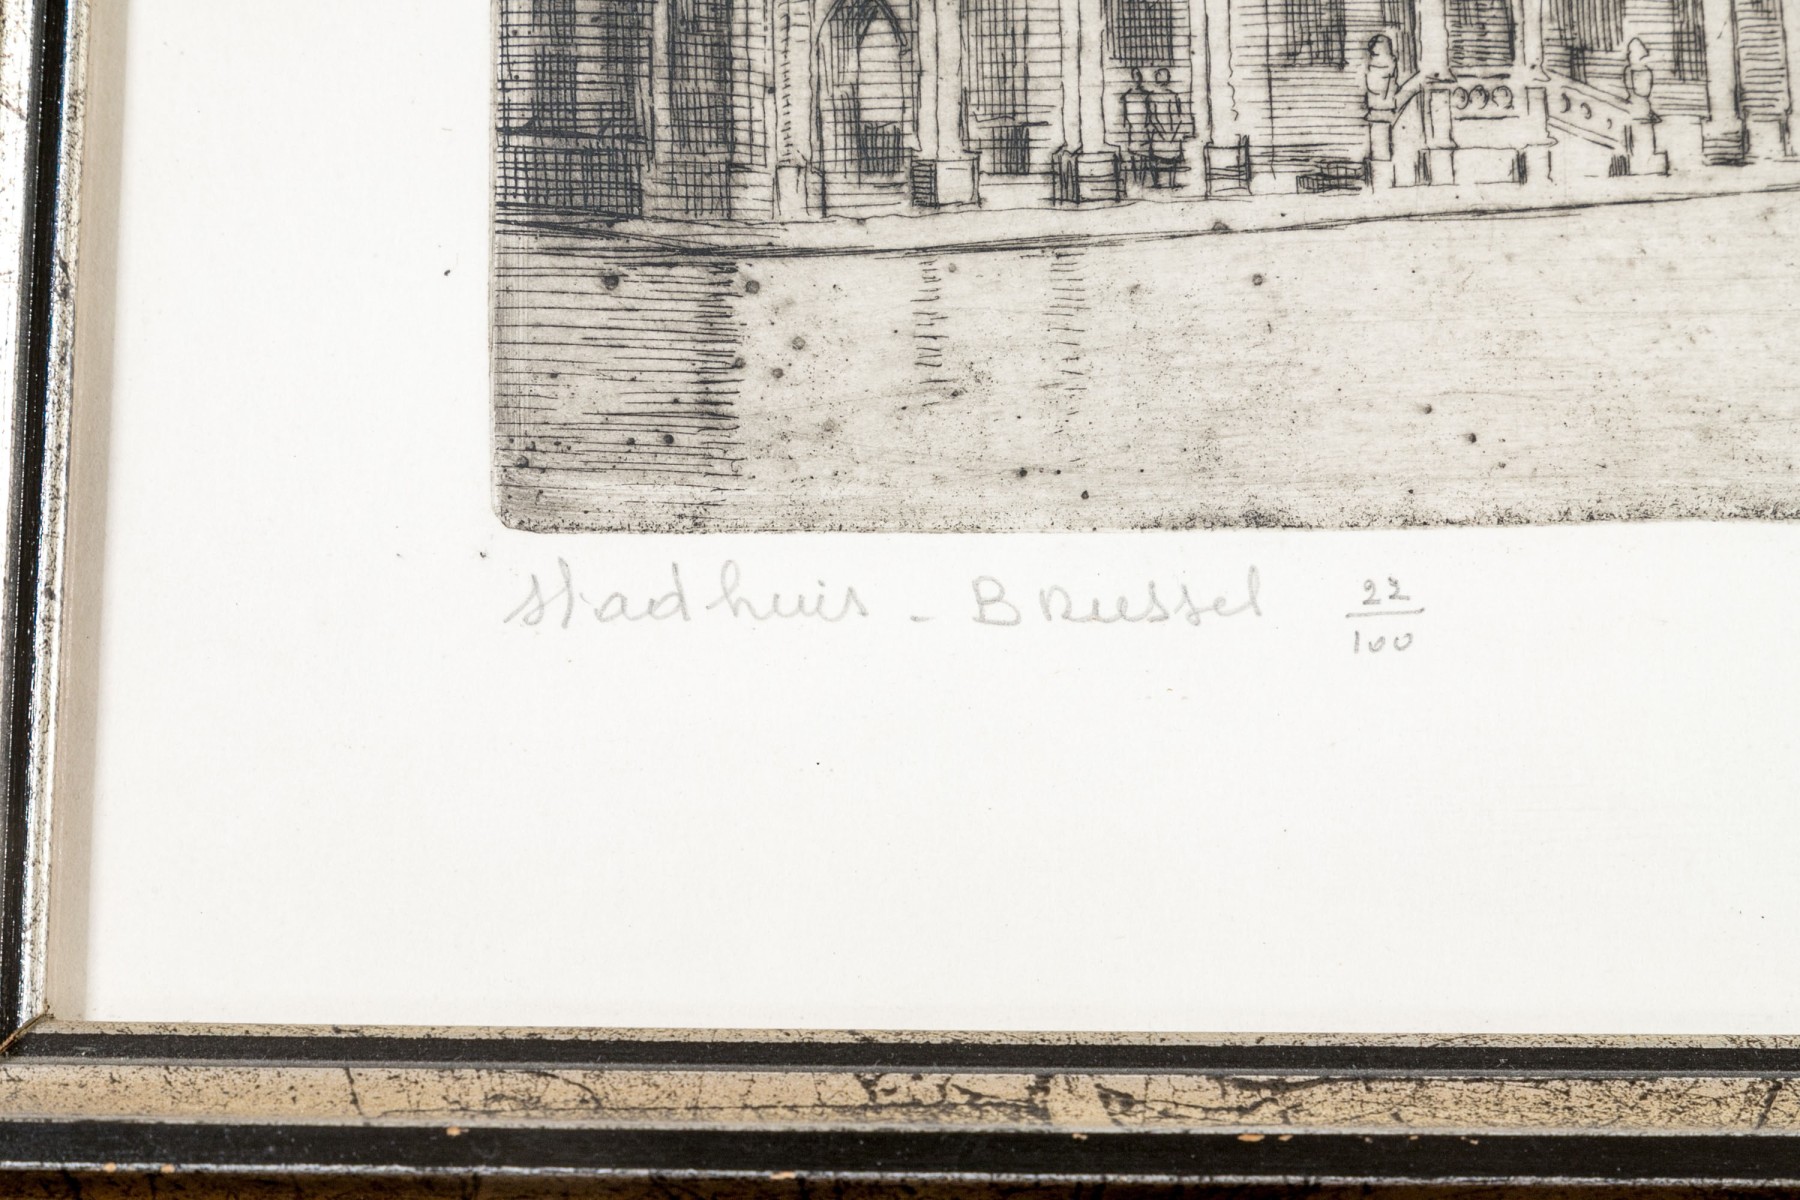 stadhuis - Brussel 22/100